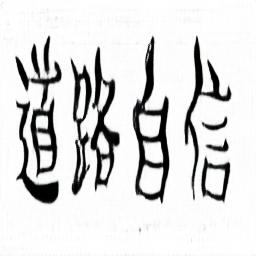 道路自信